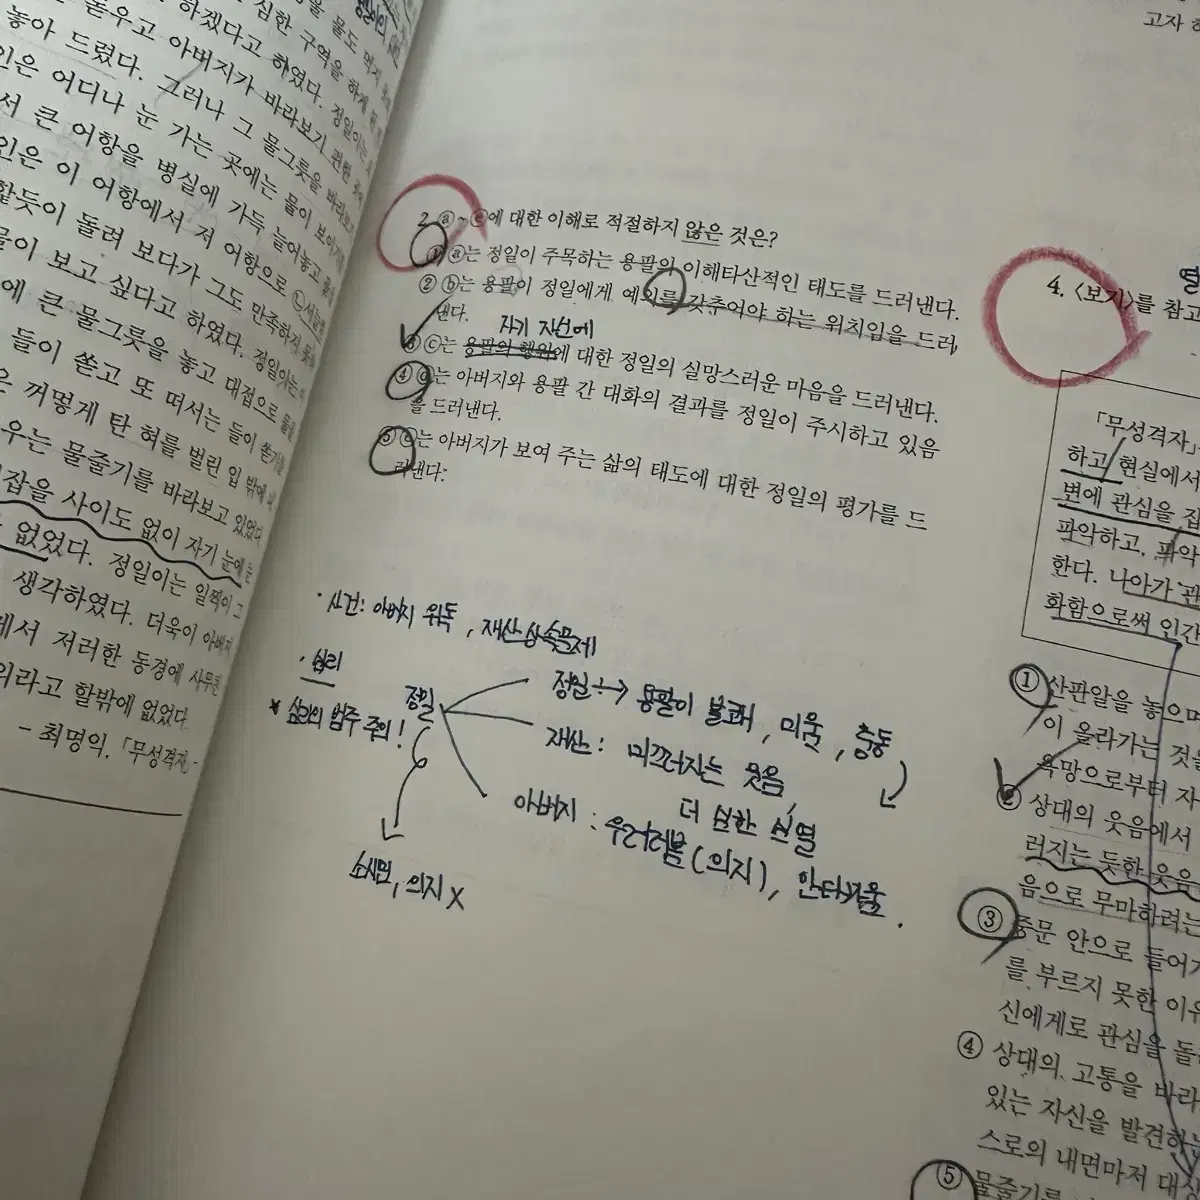 돋우고 아버지가 바라보기 편한
하겠다고 하였다. 정일이는
놓아 드렸다. 그러나 그 물그릇을
인은 어디나 눈 가는 곳에는 물이 보이
서 큰 어항을 병실에 가득 늘어놓고
인은 이 어항에서 저 어항으로
핥듯이 돌려 보다가 그도 만족하지 못
물이 보고 싶다고 하였다. 정일이는
에 큰 물그릇을 놓고 대접으로 물을
들이 쏟고 또 떠서는 들이 쏟기를
은 꺼멓게 탄 혀를 벌린 입 밖에
우는 물줄기를 바라보고 있었다.
잡을 사이도 없이 자기 눈에
없었다. 정일이는 일찍이 그
생각하였다. 더욱이 아버지
에서 저러한 동경에 사무친
의라고 할밖에 없었다.
- 최명익, 「무성격자」 -
2. ⓐ~ⓔ에 대한 이해로 적절하지 않은 것은?
① ⓐ는 정일이 주목하는 용팔의 이해타산적인 태도를 드러낸다.
② ⓑ는 용팔이 정일에게 예의를 갖추어야 하는 위치임을 드러
낸다.
자기 자신에
③ ⓒ는 용팔의 행위에 대한 정일의 실망스러운 마음을 드러낸다.
④ ⓓ는 아버지와 용팔 간 대화의 결과를 정일이 주시하고 있음
을 드러낸다.
⑤ ⓔ는 아버지가 보여 주는 삶의 태도에 대한 정일의 평가를 드
러낸다.
· 사건: 아버지 위독, 재산상속문제
· 심리
* 심리의 범주 주의!
정일
정일 → 용팔이 불쾌, 미움, 충동
재산: 미끄러지는 웃음,
더 심한 신열
아버지: 우러러봄(의지), 안타까움.
소시민, 의지 X
고자
4. <보기>를 참고
「무성격자」
하고 현실에서
변에 관심을 집
파악하고, 파악
한다. 나아가 관
화함으로써 인간
① 산판알을 놓으며
이 올라가는 것을
욕망으로부터 자
② 상대의 웃음에서
러지는 듯한 웃음
음으로 무마하려는
③ 중문 안으로 들어가
를 부르지 못한 이유
신에게로 관심을 돌
④ 상대의 고통을 바라
있는 자신을 발견하는
스로의 내면마저 대상
⑤ 물줄기를